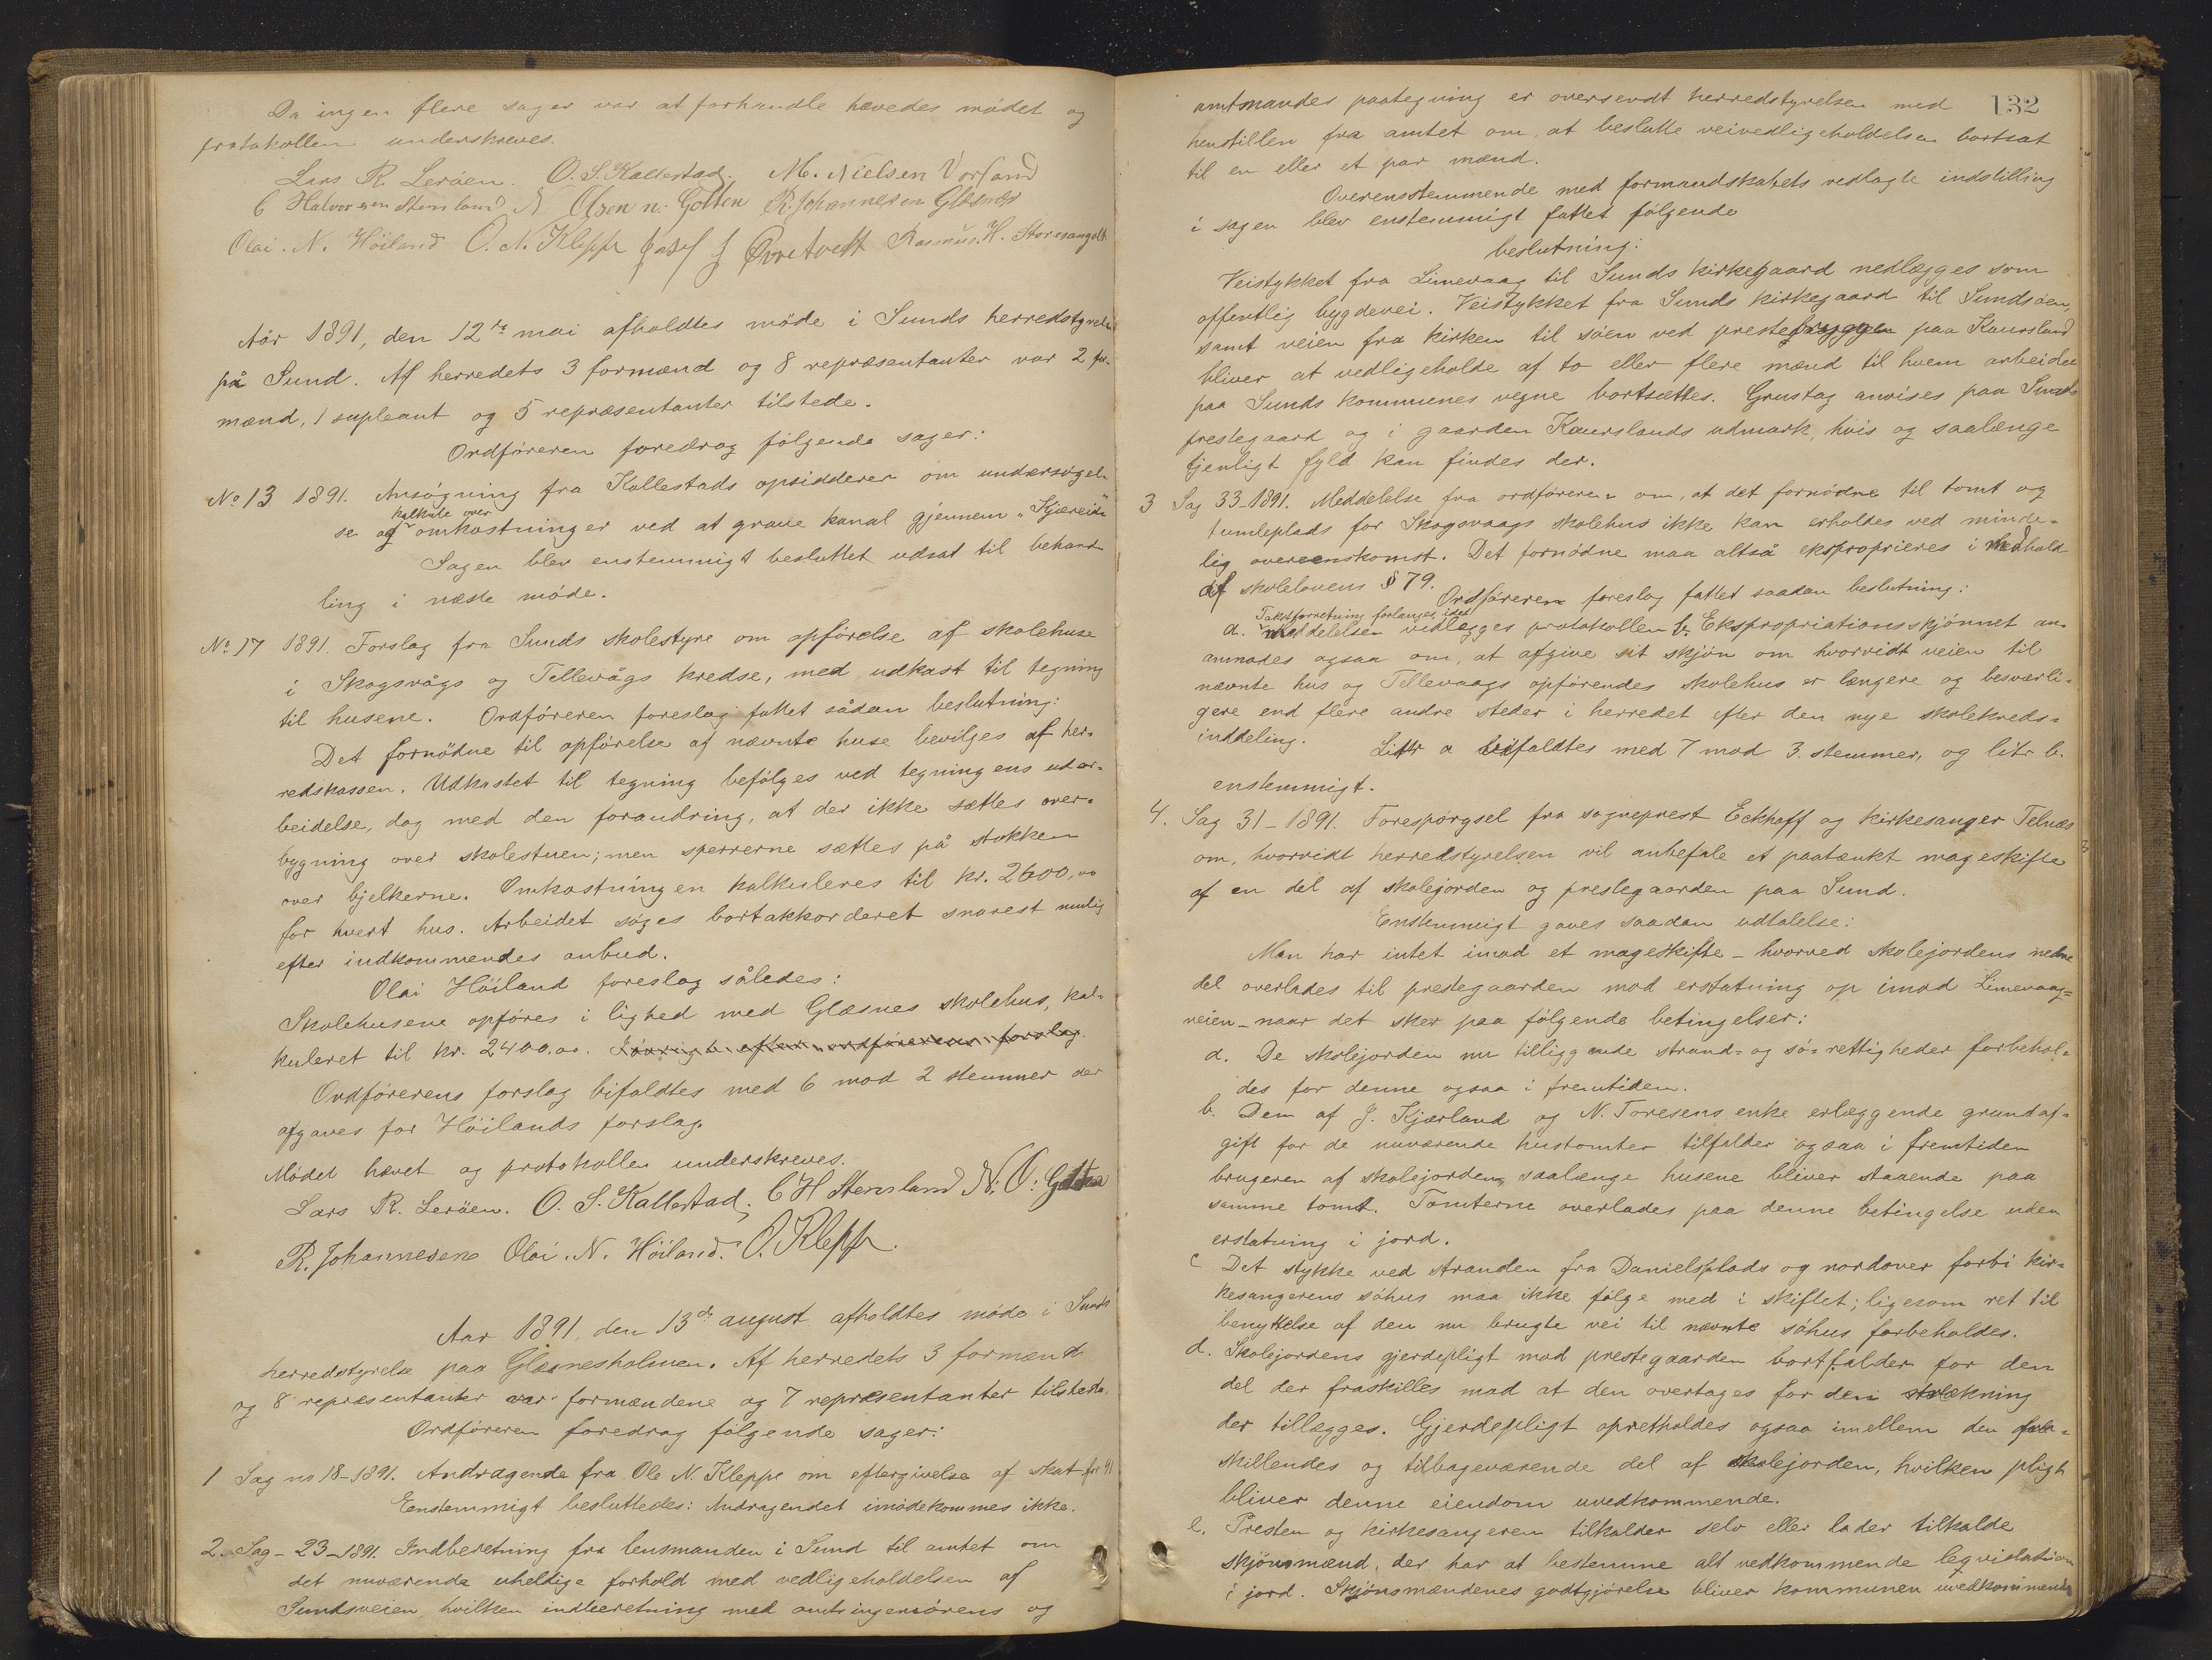 Da ingen flere sager var at forhandle hævedes mödet og
protokollen underskreves.
Lars R. Leröen. O. S. Kallestad. M. Nielsen Vorland
C Halvorsen Stensland N Olsen n. Golten R. Johannesen Glesnes
Olai. N. Höiland O. N. Kleppe Josef J Øvretvedt Rasmus. H. Storesangolt
Aår 1891, den 12te mai afholdtes möde i Sunds herredstyrelse
på Sund. Af herredets 3 formænd og 8 repræsentanter var 2 for-
mænd, 1 supleant og 5 repræsentanter tilstede.
Ordföreren foredrog fölgende sager:
No 13 1891. Ansögning fra Kallestads opsiddere om undersögel-
kalkule over
se og omkostninger ved at grave kanal gjennem "Kjæreidet"
Sagen blev enstemmigt besluttet udsat til behand-
ling i næste möde.
No 17 1891. Forslag fra Sunds skolestyre om opförelse af skolehuse
i Skogsvågs og Tellevågs kredse, med udkast til tegning
til husene. Ordföreren foreslog fattet sådan beslutning:
Det fornödne til opförelse af nævnte huse bevilges af her-
redskassen. Udkastet til tegning befölges ved tegningens udar-
beidelse, dog med den forandring, at der ikke sættes over-
bygning over skolestuen; men sperrerne sættes på stokken
over bjelkerne. Omkostningen kalkuleres til kr. 2600,00
for hvert hus. Arbeidet söges bortakkorderet snarest mulig
efter indkommendes anbud.
Olai Höiland foreslog således:
Skolehusene opföres i lighed med Glæsnes skolehus, kal-
kuleret til kr. 2400,00. Iövrigt efter ordförerens forslag.
Ordförerens forslag bifaldtes med 6 mod 2 stemmer der
afgaves for Höilands forslag.
Mödet hævet og protokollen underskreves.
Lars R. Leröen. O. S. Kallestad. C H Stensland N. O. Golten
R. Johannesens Olai. N. Höiland. O. Kleppe.
Aar 1891, den 13de august afholdtes möde i Sunds
herredstyrelse paa Glæsnesholmen. Af herredets 3 formænd
og 8 repræsentanter var formændene og 7 repræsentanter tilstede.
Ordföreren foredrog fölgende sager:
1 Sag no 18-1891. Andragende fra Ole N. Kleppe om eftergivelse af skat for 91
Eenstemmigt besluttedes: Andragendet imödekommes ikke.
2. Sag - 23-1891. Indberetning fra lensmanden i Sund til amtet om
det nuværende uheldige forhold med vedligeholdelsen af
Sundsveien, hvilken indberetning med amtsingeniörens og
132
amtmandes paategning er oversendt herredstyrelsen med
henstillen fra amtet om, at beslutte veivedligeholdelsen bortsat
til en eller et par mænd.
Overensstemmende med formandskabets vedlagte indstilling
i sagen blev enstemmigt fattet fölgende
beslutning:
Veistykket fra Limevaag til Sunds kirkegaard nedlægges som
offentlig bygdevei. Veistykket fra Sunds kirkegaard til Sundsöen,
samt veien fra kirken til söen ved prestebryggen paa Kausland
bliver at vedligeholde af to eller flere mænd til hvem arbeidet
paa Sunds kommunes vegne bortsættes. Grustag anvises paa Sunds
prestegaard og i gaarden Kauslands udmark, hvis og saalænge
tjenligt fyld kan findes der.
3 Sag 33-1891. Meddelelse fra ordföreren om, at det fornödne til tomt og
tumleplads for Skogsvaags skolehus ikke kan erholdes ved minde-
lig overeenskomst. Det fornödne maa altså eksproprieres i medhold
af skolelovens § 79. Ordföreren foreslog fattet saadan beslutning:
Takstforretning forlanges, idet
a. meddelelsen vedlægges protokollen b. Ekspropriationsskjönnet an-
anmodes ogsaa om, at afgive sit skjön om hvorvidt veien til
nævnte hus og Tellevaags opförendes skolehus er længere og besværli-
gere end flere andre steder i herredet efter den nye skolekreds-
inddeling. Littr a bifaldtes med 7 mod 3 stemmer, og litr b.
enstemmigt.
4. Sag 31-1891. Forespörgsel fra sogneprest Eckhoff og kirkesanger Telnæs
om, hvorvidt herredstyrelsen vil anbefale et paatænkt mageskifte
af en del af skolejorden og prestegaarden paa Sund.
Enstemmigt gaves saadan udtalelse:
Man har intet imod et mageskifte - hvorved skolejordens nedre
del overlades til prestegaarden mod erstatning op imod Limevaag-
veien - naar det sker paa fölgende betingelser:
a. De skolejorden nu tilliggende strand- og sö-rettigheder forbehol-
des for denne ogsaa i fremtiden.
b. Den af J. Kjærland og N. Toresens enke erlæggende grundaf-
gift for de nuværende hustomter tilfalder ogsaa i fremtiden
brugeren af skolejorden, saalænge husene bliver staaende paa
samme tomt. Tomterne overlades paa denne betingelse uden
erstatning i jord.
c Det stykke ved stranden fra Danielsplads og nordover forbi kir-
kesangerens söhus maa ikke fölge med i skiftet; ligesom ret til
benyttelse af den nu brugte vei til nævnte söhus forbeholdes.
d. Skolejordens gjerdepligt mod prestegaarden bortfalder for den
del der fraskilles mod at den overtages for den strækning
der tillægges. Gjerdepligt opretholdes ogsaa imellem den fra-
skillendes og tilbageværende del af skolejorden, hvilken pligt
bliver denne eiendom uvedkommende.
e. Presten og kirkesangeren tilkalder selv eller lader tilkalde
skjönsmænd, der har at bestemme alt vedkommende leqvidation
i jord. Skjönsmændenes godtgjörelse bliver kommunen uvedkommende